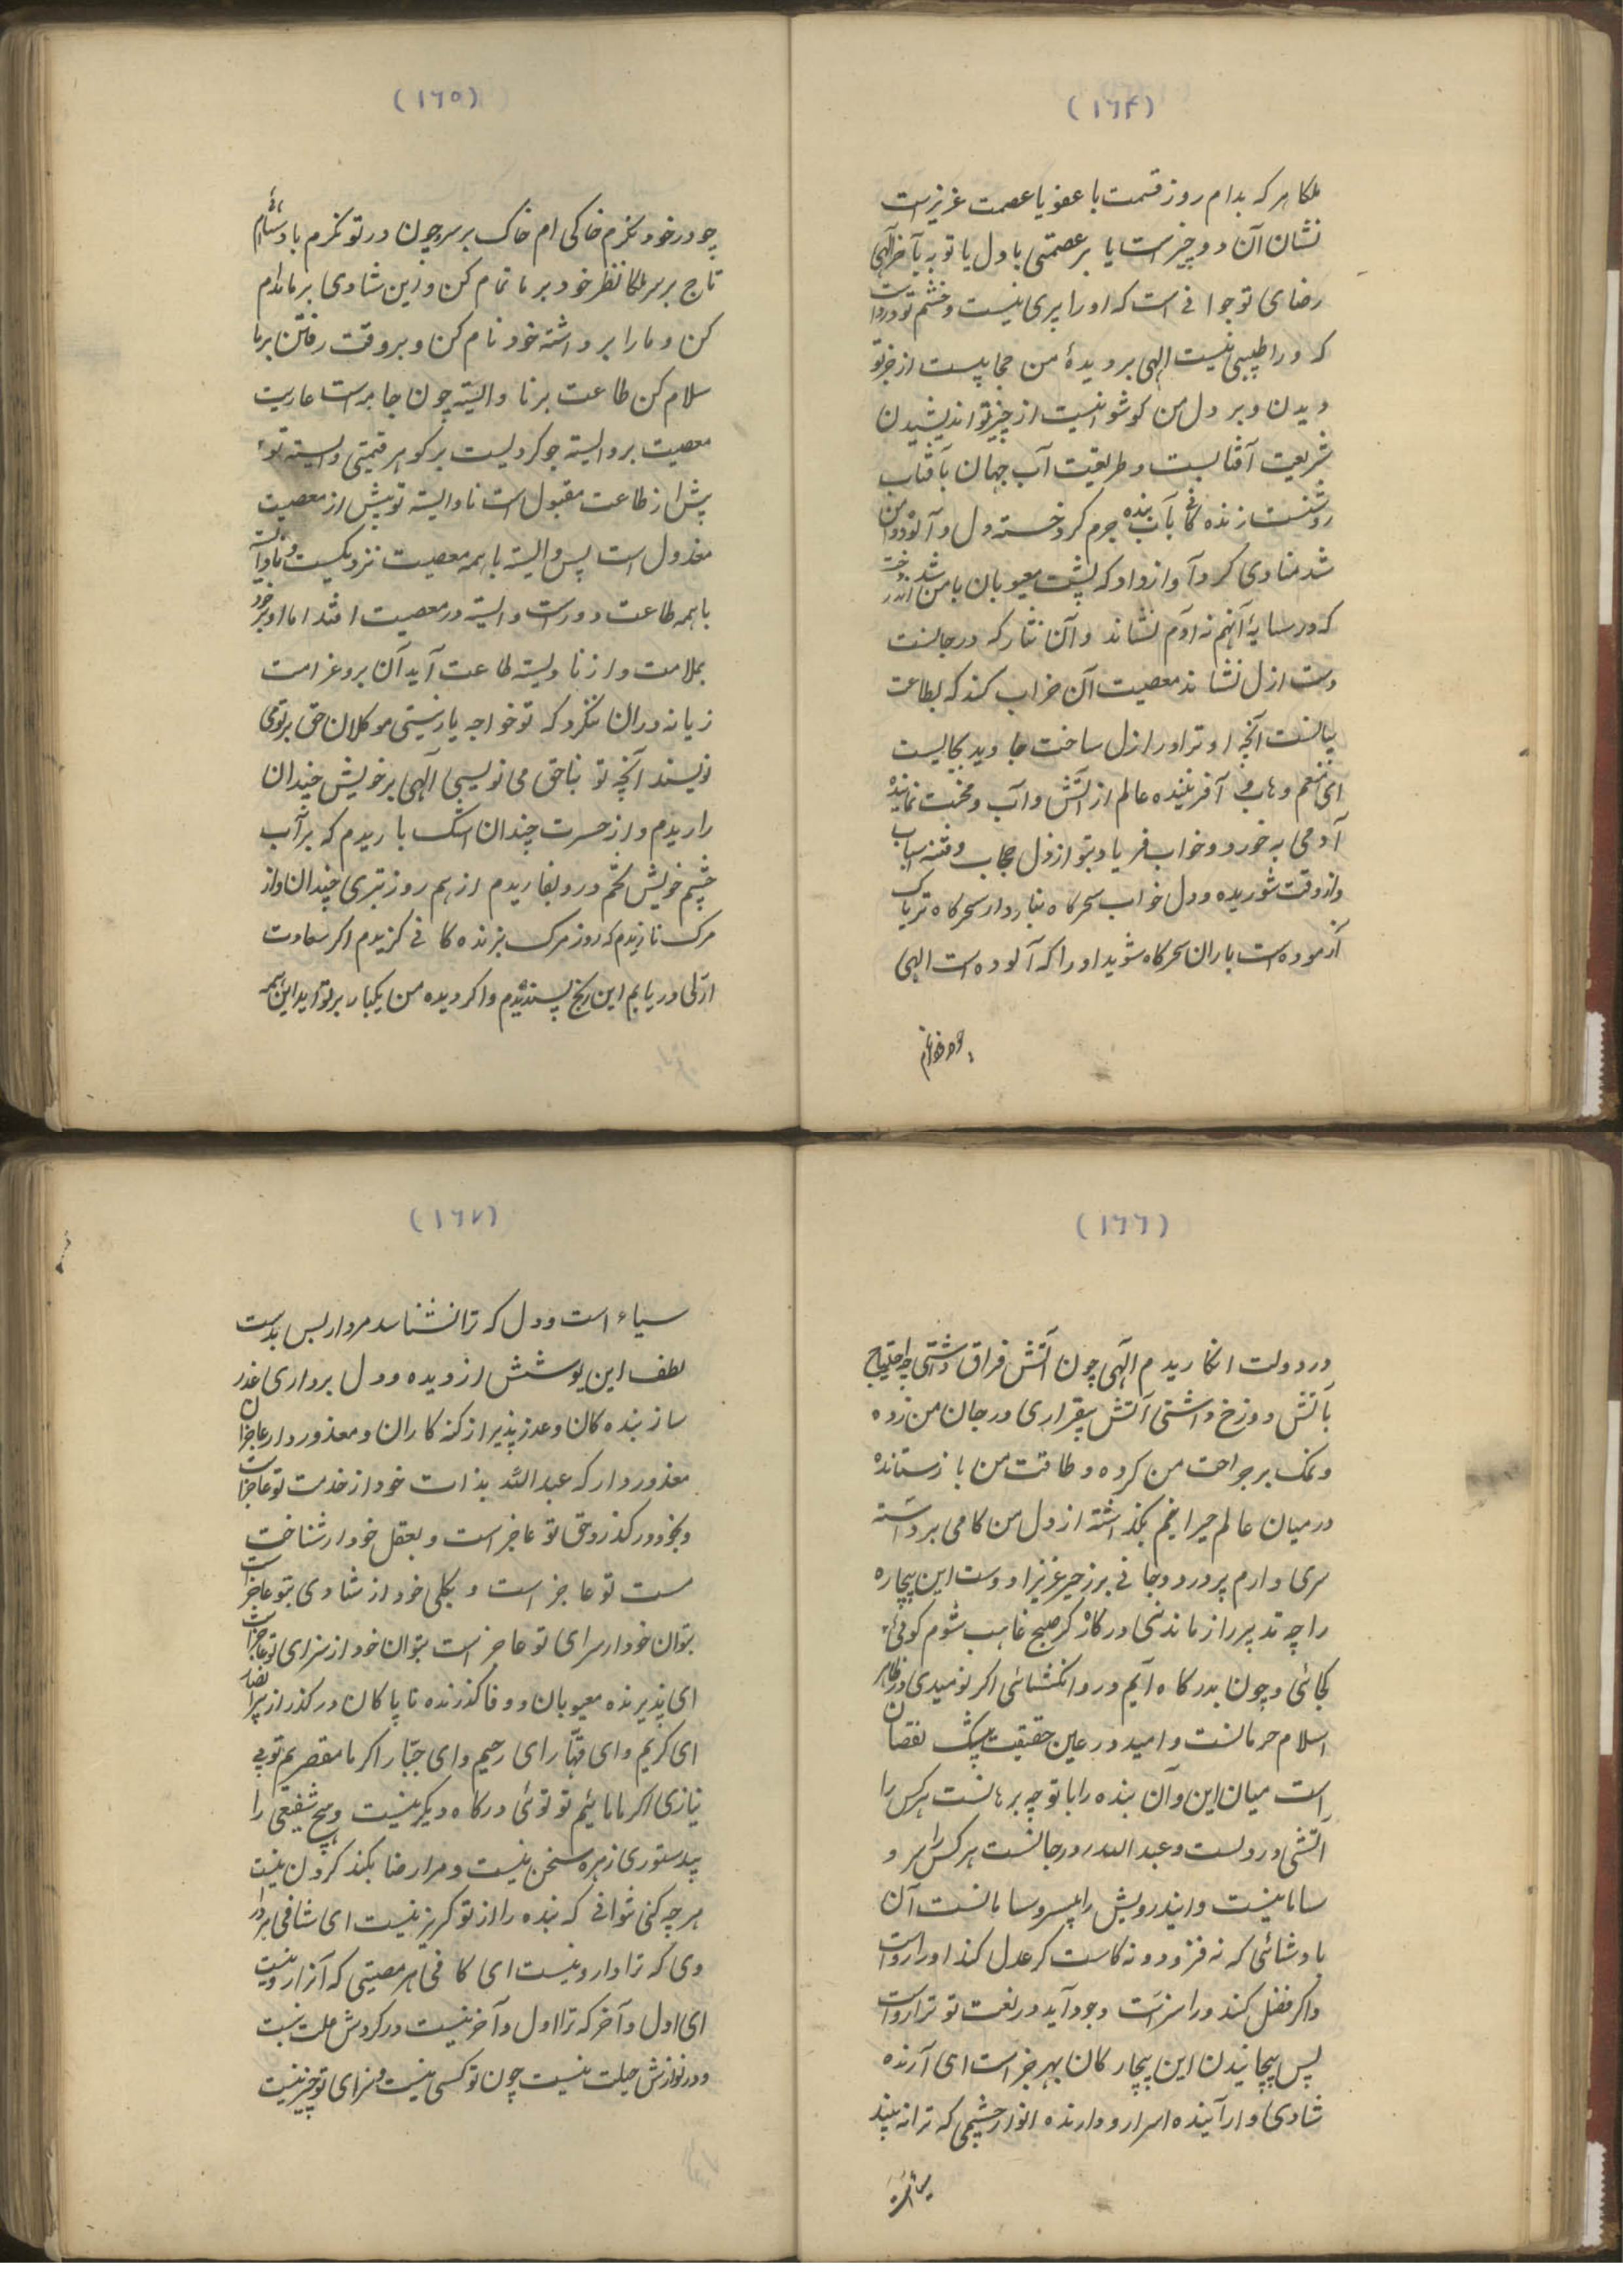 (۱۶۴)
ملکا هرکه بدام روز قسمت با عفو یا عصمت عزیزست
نشان آن دو چیزست یا بر عصمتی با دل یا توبه بآخر آلهی
رضای تو جوانی است که او را پیری نیست و خشم تو دردیست
که ورا طبیبی نیست الهی بر دیدهٔ من حجابیست از جز تو
دیدن و بر دل من کوشوانیست از چیز تو اندیشیدن
شریعت آفتابست و طریقت آب جهان بآفتاب
روشنست زنده کانی بآب بنده جرم کرد خسته دل و آلوده دامن
شد منادی کرد آواز داد که پشت معیوبان بامن
که در سایهٔ آنهم نه آدم نشاند و آن نثار که در جانست
دست ازل نشاند معصیت آن خراب کند که بطاعت
بیانست آنچه او ترا در ازل ساخت جاوید بجایست
ای منعم وهاب و آفریننده عالم از آتش و آب و محبت نماینده
آدمی به خورد و خواب فریاد بتو از دل حجاب و فتنه اسباب
و از وقت شوریده و دل خواب سحرگاه بنا ردار سحرکاه تریاک
آزموده است باران سحرکاه شوید او را که آلوده است الهی
چو در خود نکرم
(۱۶۵)
چو در خود نکرم خاکی ام خاک بر سر و چون در تو نکرم بادشاهم
تاج بر سر ملکا نظر خود بر ما تمام کن و زین شادی بر ما دام
کن و ما را برداشته خود نام کن و بر وقت رفتن بر ما
سلام کن طاعت بر نا والیته چون جامه است عاریت
معصیت بر والیته جو کردیست بر کوهر قیمتی والیسته تو
پیش از طاعت مقبول است نا والیته تو پیش از معصیت
مخذول است پس والیته با همه معصیت نزدیکیست و نا والیته
با همه طاعت دورست والیته در معصیت افتد اما او بر خود
بملامت و از نا ولیته طاعت آید آن بر و غرامت
زیانه دران ننکرد که تو خواجه یا رستی موکلان حق بر تو می
نویسند آنچه تو بناحق می نویسی آلهی بر خویش چندان
راریدم و از حسرت چندان اشک باریدم که بر آب
چشم خویش تخم درد بفاریدم از بهم روز تبری چندان واز
مرک نازیدم که روز مرک بزنده کانی کزیدم اکر سعادت
ازلی دریابم این رنج پسندیدم و اکر دیده من یکبار بر تو آید این همه
(۱۶۶)
در دولت انکاریدم آلهی چون آتش فراق داشتی چه احتیاج
بآتش دوزخ داشتی آتش بیقراری در جان من زده
و نمک بر جراحت من کرده و طاقت من باز ستانده
در میان عالم حیرانیم بکذاشته از دل من کامی برداشته
سری دارم پر درد و جانی بر زحیر عزیز او وست این بیچاره
را چه تدبیر راز ماندنی در کار کر صبح غایب شوم کوئی
کجائی و چون بدرکاه آیم در وانکشائی اکر نومیدی در ظاهر
اسلام حرمانست و امید در عین حقیقت بیشک نقصان
است میان این و آن بنده را با تو چه برهانست هرکس را
آتشی در دلست و عبد الله در در جانست هرکس را سر و
سامانیست و این درویش را بیسروسامانست آن
بادشائی که نه فزود و نه کاست کر عدل کند او را رواست
و اکر فضل کند ورا سزاست وجود آید در نعمت تو ترا رواست
پس پیچانیدن این بیچارکان بهر چراست ای آرنده
شادی و ارآینده اسرار و دارنده انوار چشمی که ترا نه بیند
سیاه است
(۱۶۷)
سیاه است و دل که ترا نشناسد مردار بس بدست
لطف این پوشش از دیده و دل برداری عذر
ساز بنده کان و عذر پذیر از کنه کاران و معذور دار عاجزان
معذور دار که عبد الله بذات خود از خدمت تو عاجزست
و بخود در کذر دحق تو عاجز است و بعقل خود از شناخت
مست تو عاجز است و بکلی خود از شادی بتو عاجزست
بتوان خود از سرای تو عاجز است بتوان خود از سزای تو عاجزست
ای پذیرنده معیوبان و وفا کذرنده ناپاکان در کذر از تقصیر ما
ای کریم و ای قهار ای رحیم و ای جبار اکر ما مقصریم تو بی
نیازی اکر ما مائیم تو توئی درکاه دیکر نیست و هیچ شفیعی را
بیدستوری زهره سخن نیست و مرا رضا بکند کردن نیست
هر چه کنی توانی که بنده را از تو کریز نیست ای شافی هر درد
وی که ترا دارو نیست ای کافی هر مصیبتی که آنرا رو نیست
ای اول و آخر که ترا اول و آخر نیست در کردش علت نیست
و در نوازش حیلت نیست چون تو کسی نیست و سزای تو چیز نیست